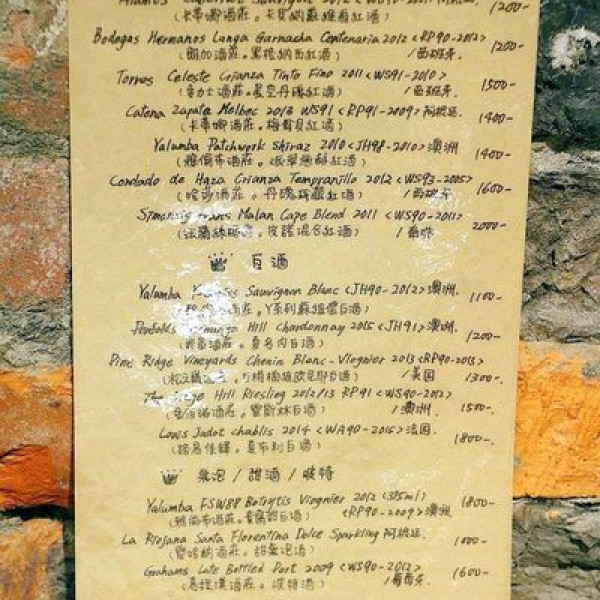 Sauvignon 2012 1200-
(卡帝娜酒莊。卡貝納蘇維翁紅酒)
Bodegas Hermanos Langa Garnacha Centenaria 2012 <RP90-2012> 1200-
酒莊。黑格納西紅酒) /西班牙
Torres Celeste Crianza Tinto Fino 2011 <WS91-2010> 1500-
酒莊。星空丹魄紅酒) /西班牙.
Catena Zapata Melbec 2013 WS91 <RP91-2009> 阿根廷. 1400-
(卡帝娜酒莊。梅爾貝紅酒)
Yalumba Patchwork Shiraz 2010 <JH94-2010> 澳洲 1400-
酒莊。 紅酒)
Condado de Haza Crianza Tempranillo 2012 <WS93-2005> 1600-
(哈莎酒莊。丹魄 紅酒) /西班牙
Simonsig Frans Malan Cape Blend 2011 <WS90-2011> 2000-
混合紅酒) /南非
白酒
Yalumba Sauvignon Blanc <JH90-2012> 澳洲. 1100-
酒莊。Y系列蘇維儂白酒)
Penfolds Hill Chardonnay 2015 <JH91> 澳洲. 1200-
酒莊。夏多內白酒)
Pine Ridge Vineyards Chenin Blanc-Viognier 2013 <RP90-2013> /美国 1300-
Hill Riesling 2012/13 RP91 <WS90-2012> /澳洲. 1500-
酒莊。雷斯林白酒)
Louis Jadot chablis 2014 <WA90-2015> 法国. 1800-
(路易佳鐸。夏布利白酒)
氣泡/甜酒/波特
Yalumba FSW8B Botrytis Viognier 2012 (375ml) 1800-
酒莊。貴腐甜白酒) <RP90-2009> 澳洲
La Riojana Santa Florentina Dolce Sparkling 阿根廷. 1000-
酒莊。甜氣泡酒)
Grahams Late Bottled Port 2009 <WS90-2012> 1600-
酒莊。波特酒) /葡萄牙.